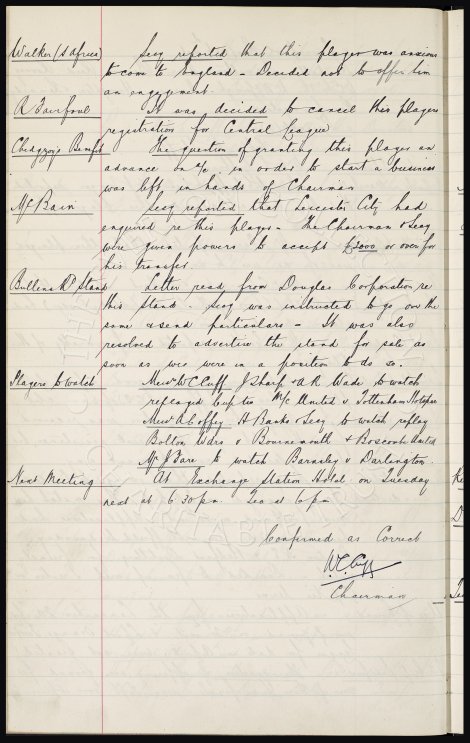 Walker (S Africa) Secy reported that this player was anxious
to come to England - Decided not to offer him
an engagement.
R Fairfoul It was decided to cancel this players
registration for Central League
Chedgzoy's Benefit The question of granting this player an
advance on a/c in order to start a business
was left in hands of Chairman
McBain Secy reported that Leicester City had
enquired re this player - The Chairman & Secy
were given powers to accept £3000 or over for
his transfer.
Bullens Rd Stand Letter read from Douglas Corporation re
this Stand. Secy was instructed to go over the
same & send particulars - It was also
resolved to advertise the stand for sale as
soon as we were in a position to do so.
Players to watch Messrs W.C. Cuff J Sharp & A R Wade to watch
replayed Cup tie M/c United v Tottenham Hotspur
Messrs A Coffey H Banks & Secy to watch replay
Bolton Wdrs v Bournemouth & Boscombe United
Mr J Fare to watch Barnsley v Darlington.
Next Meeting At Exchange Station Hotel on Tuesday
next at 6.30pm Tea at 6 pm
Confirmed as Correct
W.C. Cuff
Chairman